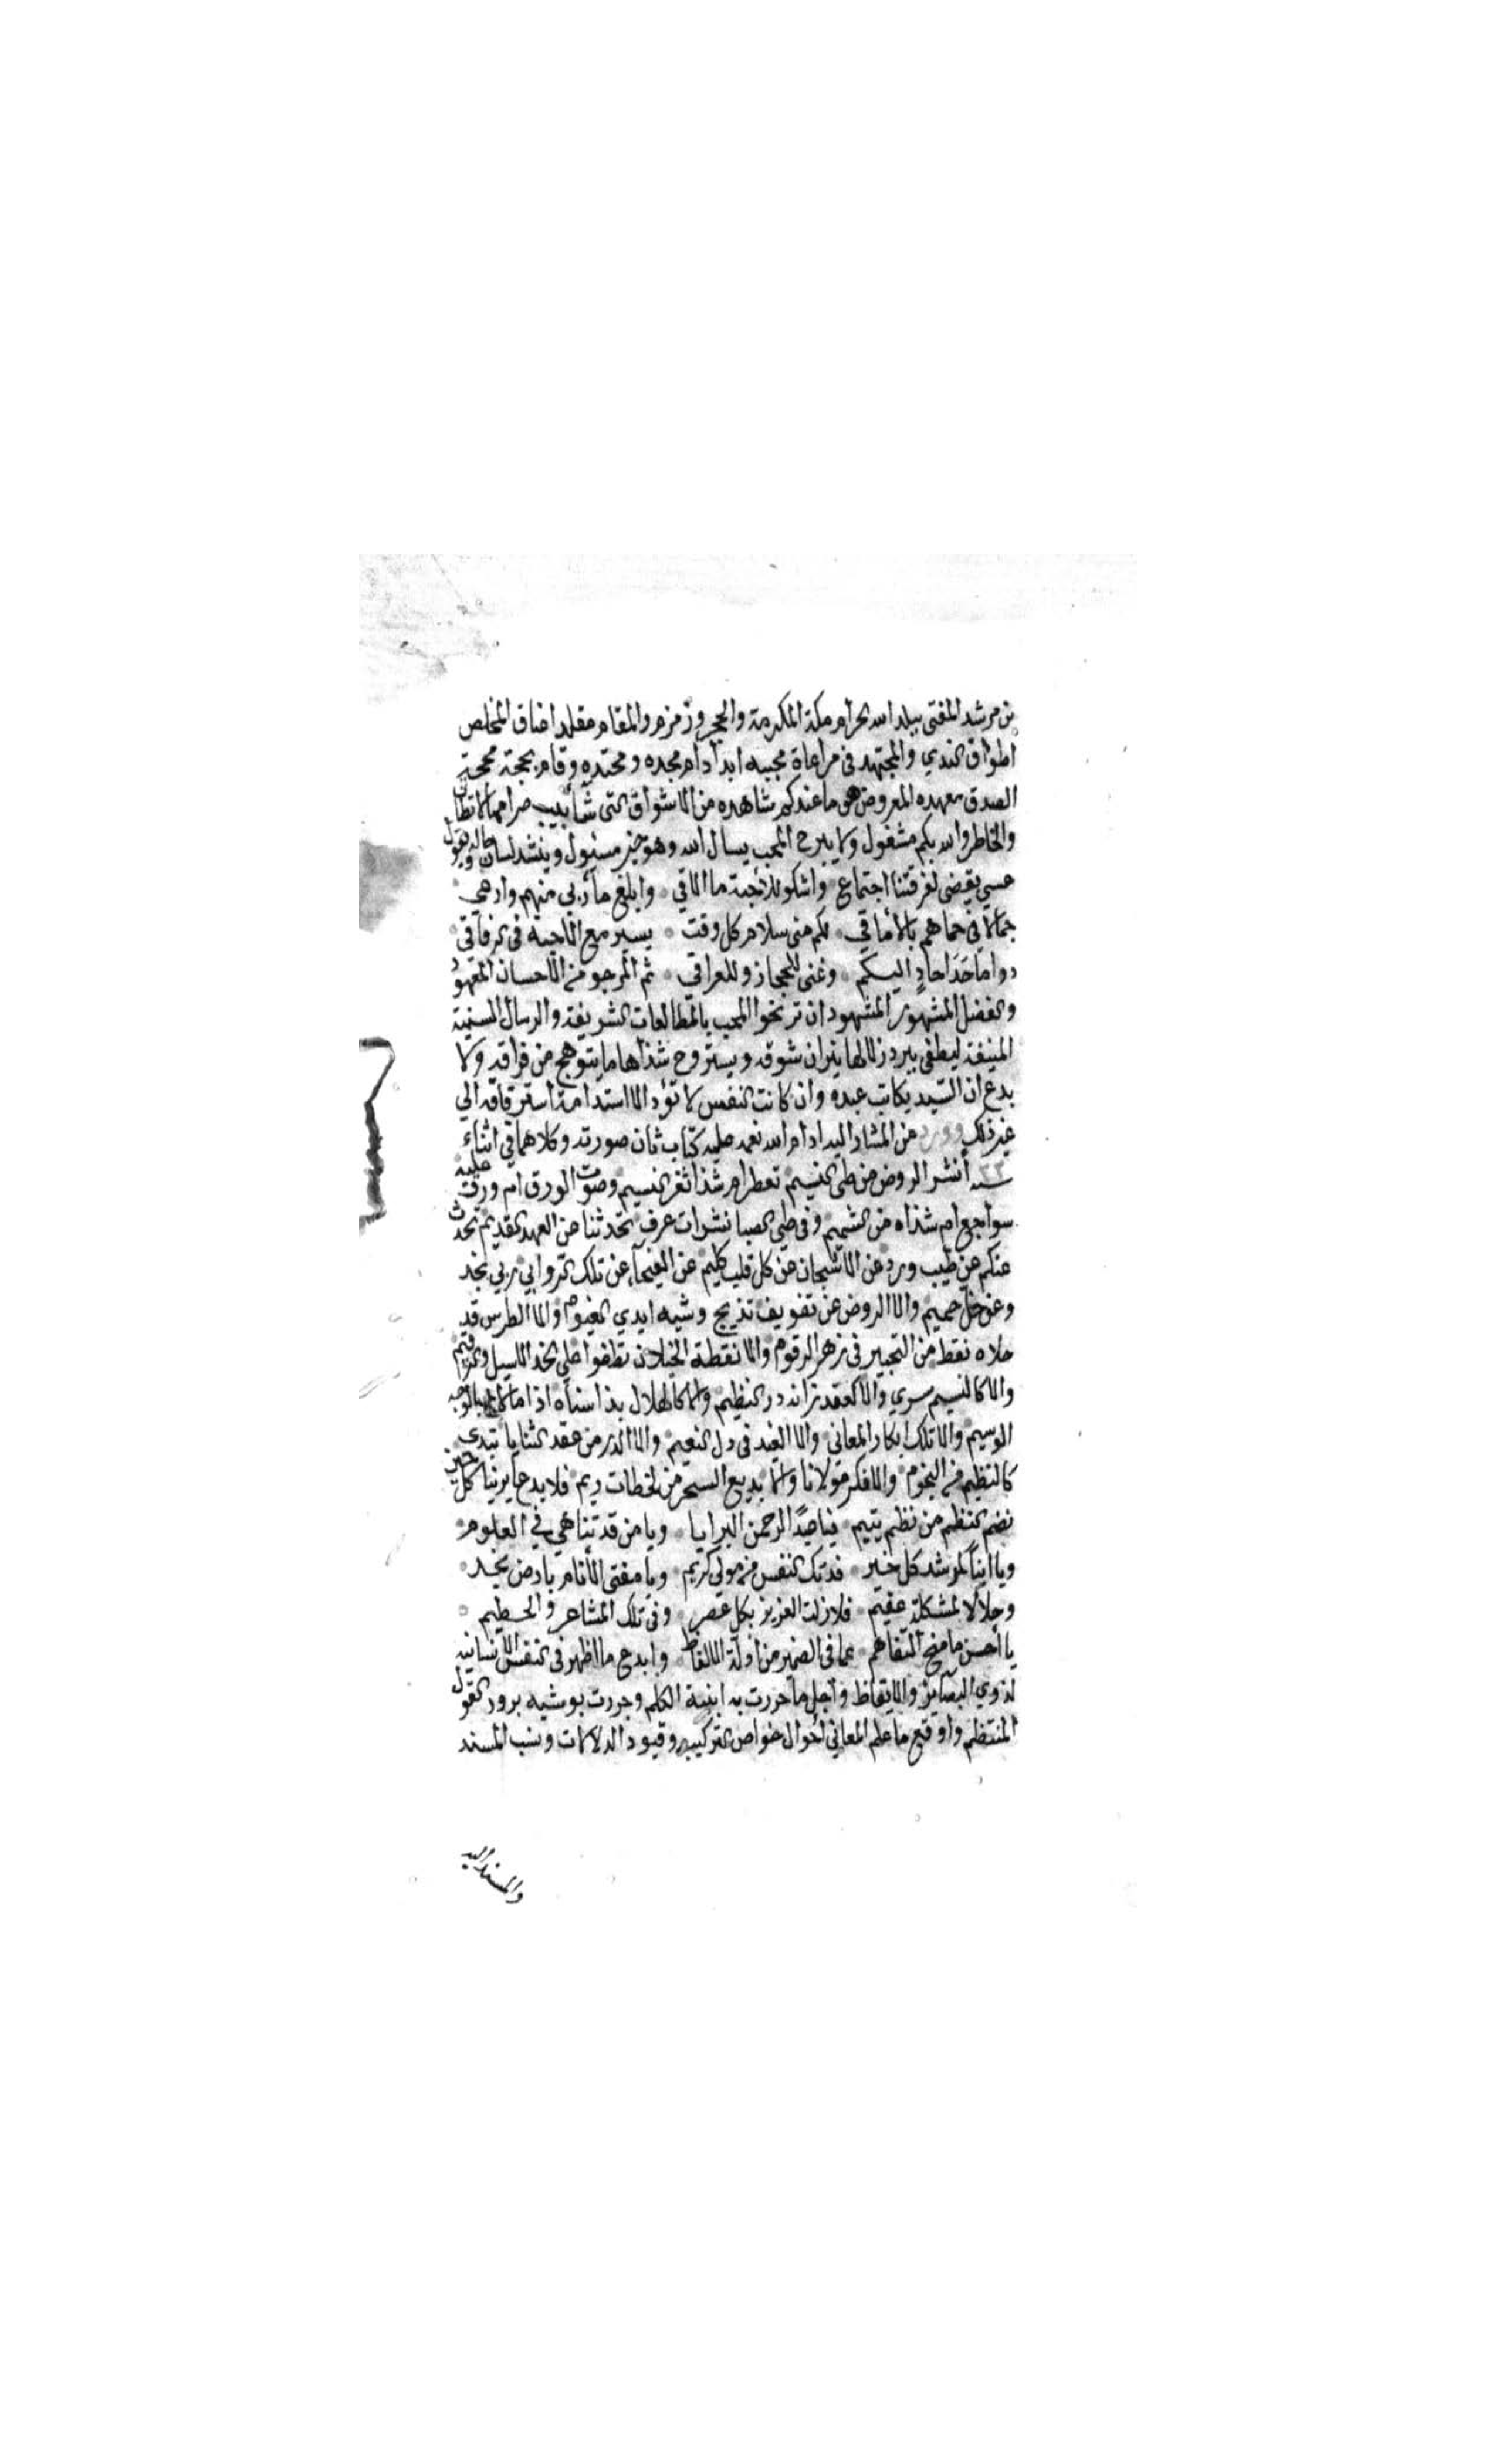 بن مرشد المفتى ببلد الله الحرام مكة المكرمة والحجر وزمزم والمقام مقلد اعناق المخلص
اطواق الندي والمجتهد فى مراعاة محبيه ابدا دام مجده ومحتده وقام بحجة محجة
الصدق معهده المعروض هو ما عندكم شاهده من الاشواق التى شآبيب ضرامها لا تطاق
والخاطر والله بكم مشغول ولا يبرح المحب يسال الله وهو خير مسئول وينشد لسان حاله ويقول
عسي يقضى لفرقتنا اجتماع واشكو للاحبة ما الاقي وابلغ مآربي منهم وارعى
جمالا فى حماهم بالاماقي لكم منى سلام كل وقت يسير مع الاحبة فى الرفاقي
دواما ما حدا حاد اليكم وغنى للحجاز وللعراقي ثم المرجو من الاحسان المعهود
والفضل المشهور المشهود ان تريحوا المحب بالمطالعات الشريفة والرسائل السنية
المنيفة ليطفى ببرد زلالها نيران شوقه ويستروح شذاها ما يتوهج من فراقه ولا
بدع ان السيد يكاتب عبده وان كانت النفس لا تود الا استدامة استرقاقه الي
غير ذلك وورد من المشار اليه ادام الله نعمه عليه كتاب ثان صورته وكلاهما في اثناء
سنة أنشر الروض من طى النسيم تعطر ام شذا ثغر النسيم وصوت الورق ام ورقت عليه
سواجع ام شذاه من الشميم وفى طي الصبا نشرات عرف تحدثنا عن العهد القديم تحدث
عنكم عن طيب ورد عن الاشجان عن كل قلب كليم عن الفيحآء عن تلك الروابي ربي نجد
وعن خل حميم والا الروض عن تفويف تدبيج وشيه ايدي الغيوم والا الطرس قد
حلاه نقط من التحبير فى زهر الرقوم والا نقطة الخيلان تطفوا علي الخد الاسيل
والا كالنسيم سري والا كعقد زانه در النظيم والا كالهلال بدا سناه اذا ما لاح بالوجه
الوسيم والا تلك ابكار المعاني والا الغيد فى دل النعيم والا الدر من عقد الثنايا تبدى
كالنظيم من النجوم والا فكر مولانا والا بديع السحر من لحظات ريم فلا بدع يرينا كل حين
نضم النظم من نظم يتيم فيا صد الرحمن البرايا ويا من قد تناهي في العلوم
ويا ابنا لمرشد كل خير فدتك النفس من مولى كريم ويا مفتى الأنام بارض نجد
وحلالا لمشكلة عقيم فلا زلت العزيز بكل عصر وفى تلك المشاعر والحطيم
يا أحسن ما منح التفاهم عما فى الضمير من ادلة الالفاظ وابدع ما اظهر فى النفس الانسانيه
لذوي البصآير والايقاظ وأجل ما حررت به ابنية الكلم وجررت بوشيه برود القول
المنتظم واوقع ما علم المعاني أحوال خواص التركيب وقيود الدلالات ونسب المسند
والمسند اليه